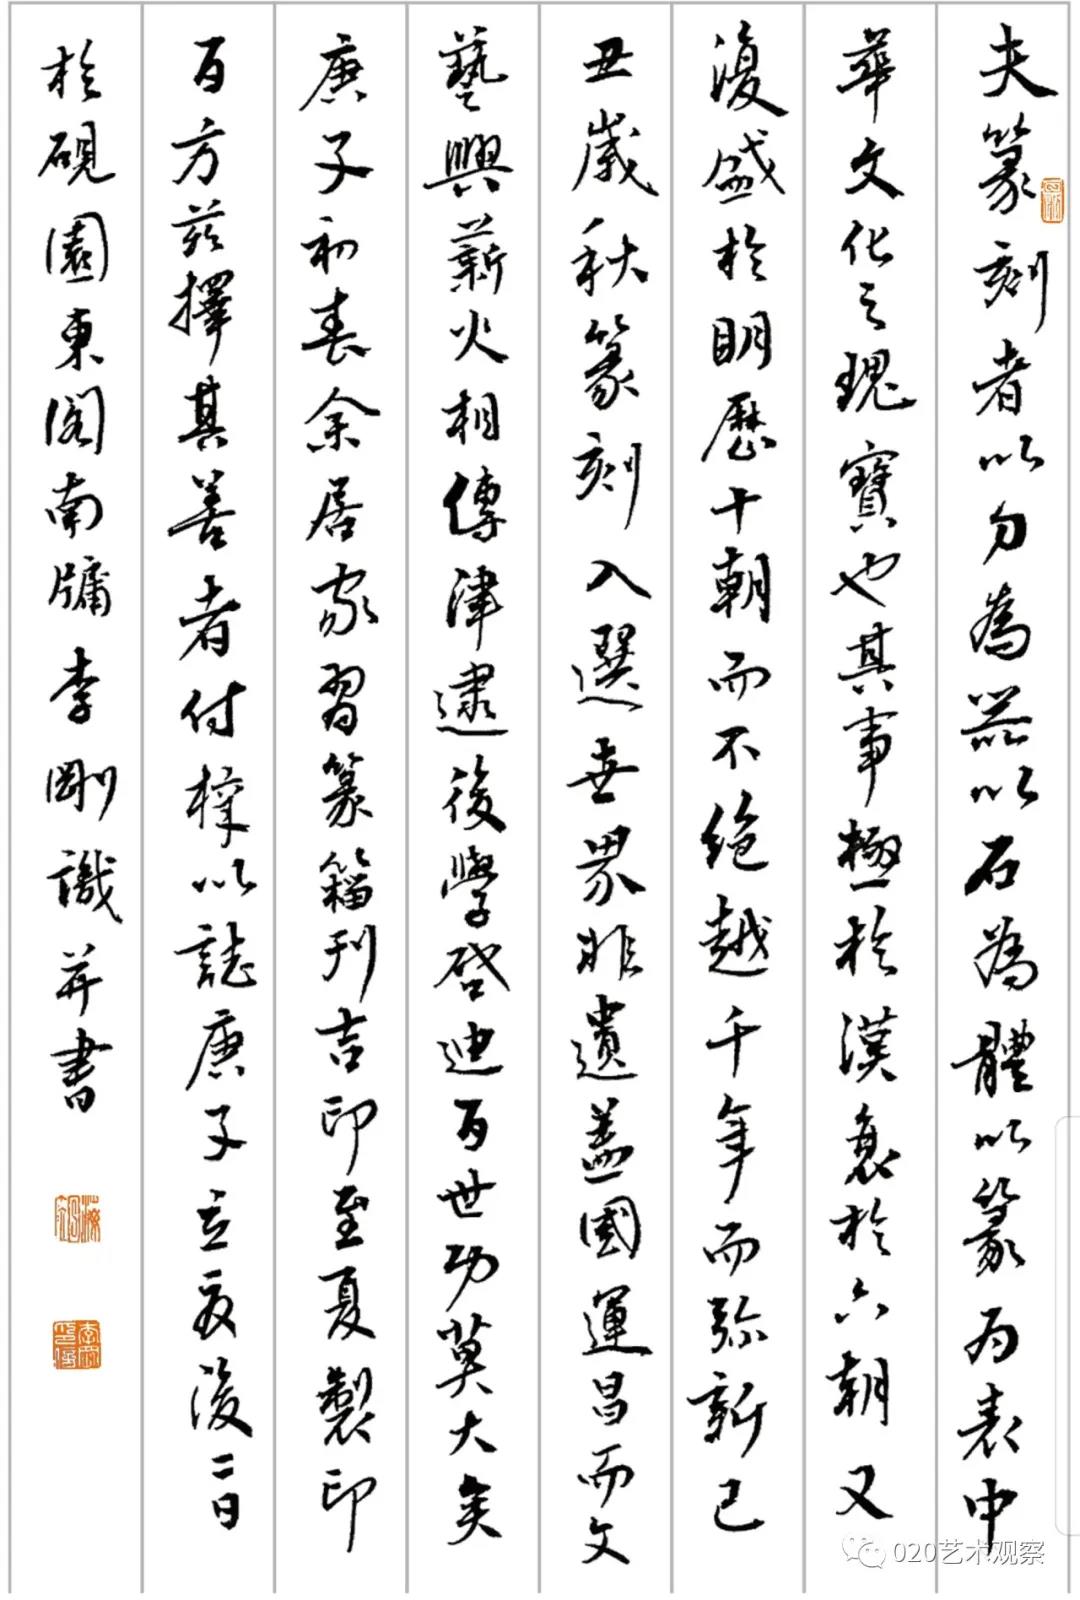 夫篆刻者以刀為器以石為體以篆為表中
華文化之瑰寶也其事極於漢衰於六朝又
復盛於明歷十朝而不絕越千年而弥新己
丑歲秋篆刻入選世界非遺蓋國運昌而文
藝興薪火相傳津逮後學啓迪百世功莫大矣
庚子初春余居家習篆籀刊吉印至夏製印
百方茲擇其善者付梓以誌庚子立夏後二日
於硯園東閣南牖李剛識并書
020艺术观察